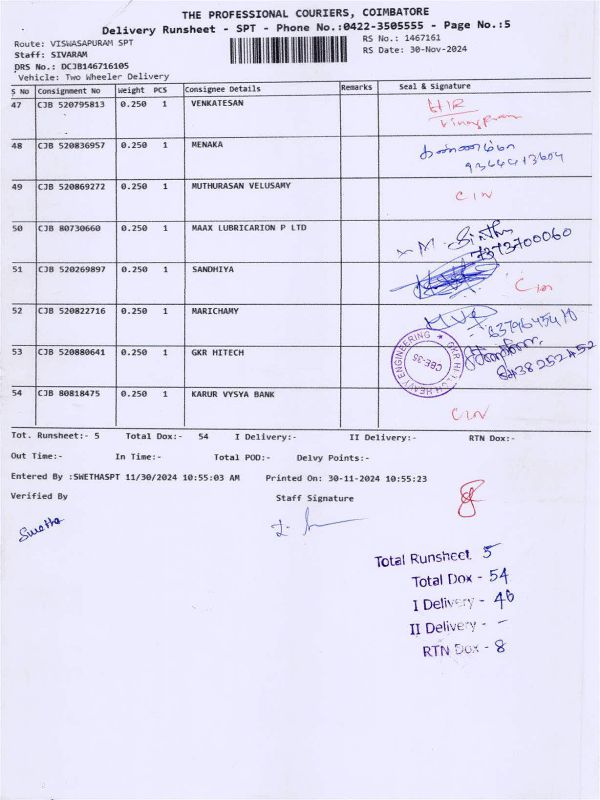 THE PROFESSIONAL COURIERS, COIMBATORE
Delivery Runsheet - SPT - Phone No.:0422-3505555 - Page No.:5
Route: VISWASAPURAM SPT
RS No.: 1467161
Staff: SIVARAM
RS Date: 30-Nov-2024
DRS No.: DCJB146716105
Vehicle: Two Wheeler Delivery
S No Consignment No Weight PCS Consignee Details Remarks Seal & Signature
47 CJB 520795813 0.250 1 VENKATESAN
48 CJB 520836957 0.250 1 MENAKA
49 CJB 520869272 0.250 1 MUTHURASAN VELUSAMY
50 CJB 80730660 0.250 1 MAAX LUBRICARION P LTD
7373700060
51 CJB 520269897 0.250 1 SANDHIYA
52 CJB 520822716 0.250 1 MARICHAMY
53 CJB 520880641 0.250 1 GKR HITECH
GKR HI-TECH HEAVY ENGINEERING
CBE-35
54 CJB 80818475 0.250 1 KARUR VYSYA BANK
Tot. Runsheet:- 5 Total Dox:- 54 I Delivery:- II Delivery:- RTN Dox:-
Out Time:- In Time:- Total POD:- Delvy Points:-
Entered By :SWETHASPT 11/30/2024 10:55:03 AM Printed On: 30-11-2024 10:55:23
Verified By Staff Signature
Swetha
Total Runsheet 5
Total Dox - 54
I Delivery - 46
II Delivery - -
RTN Dox - 8